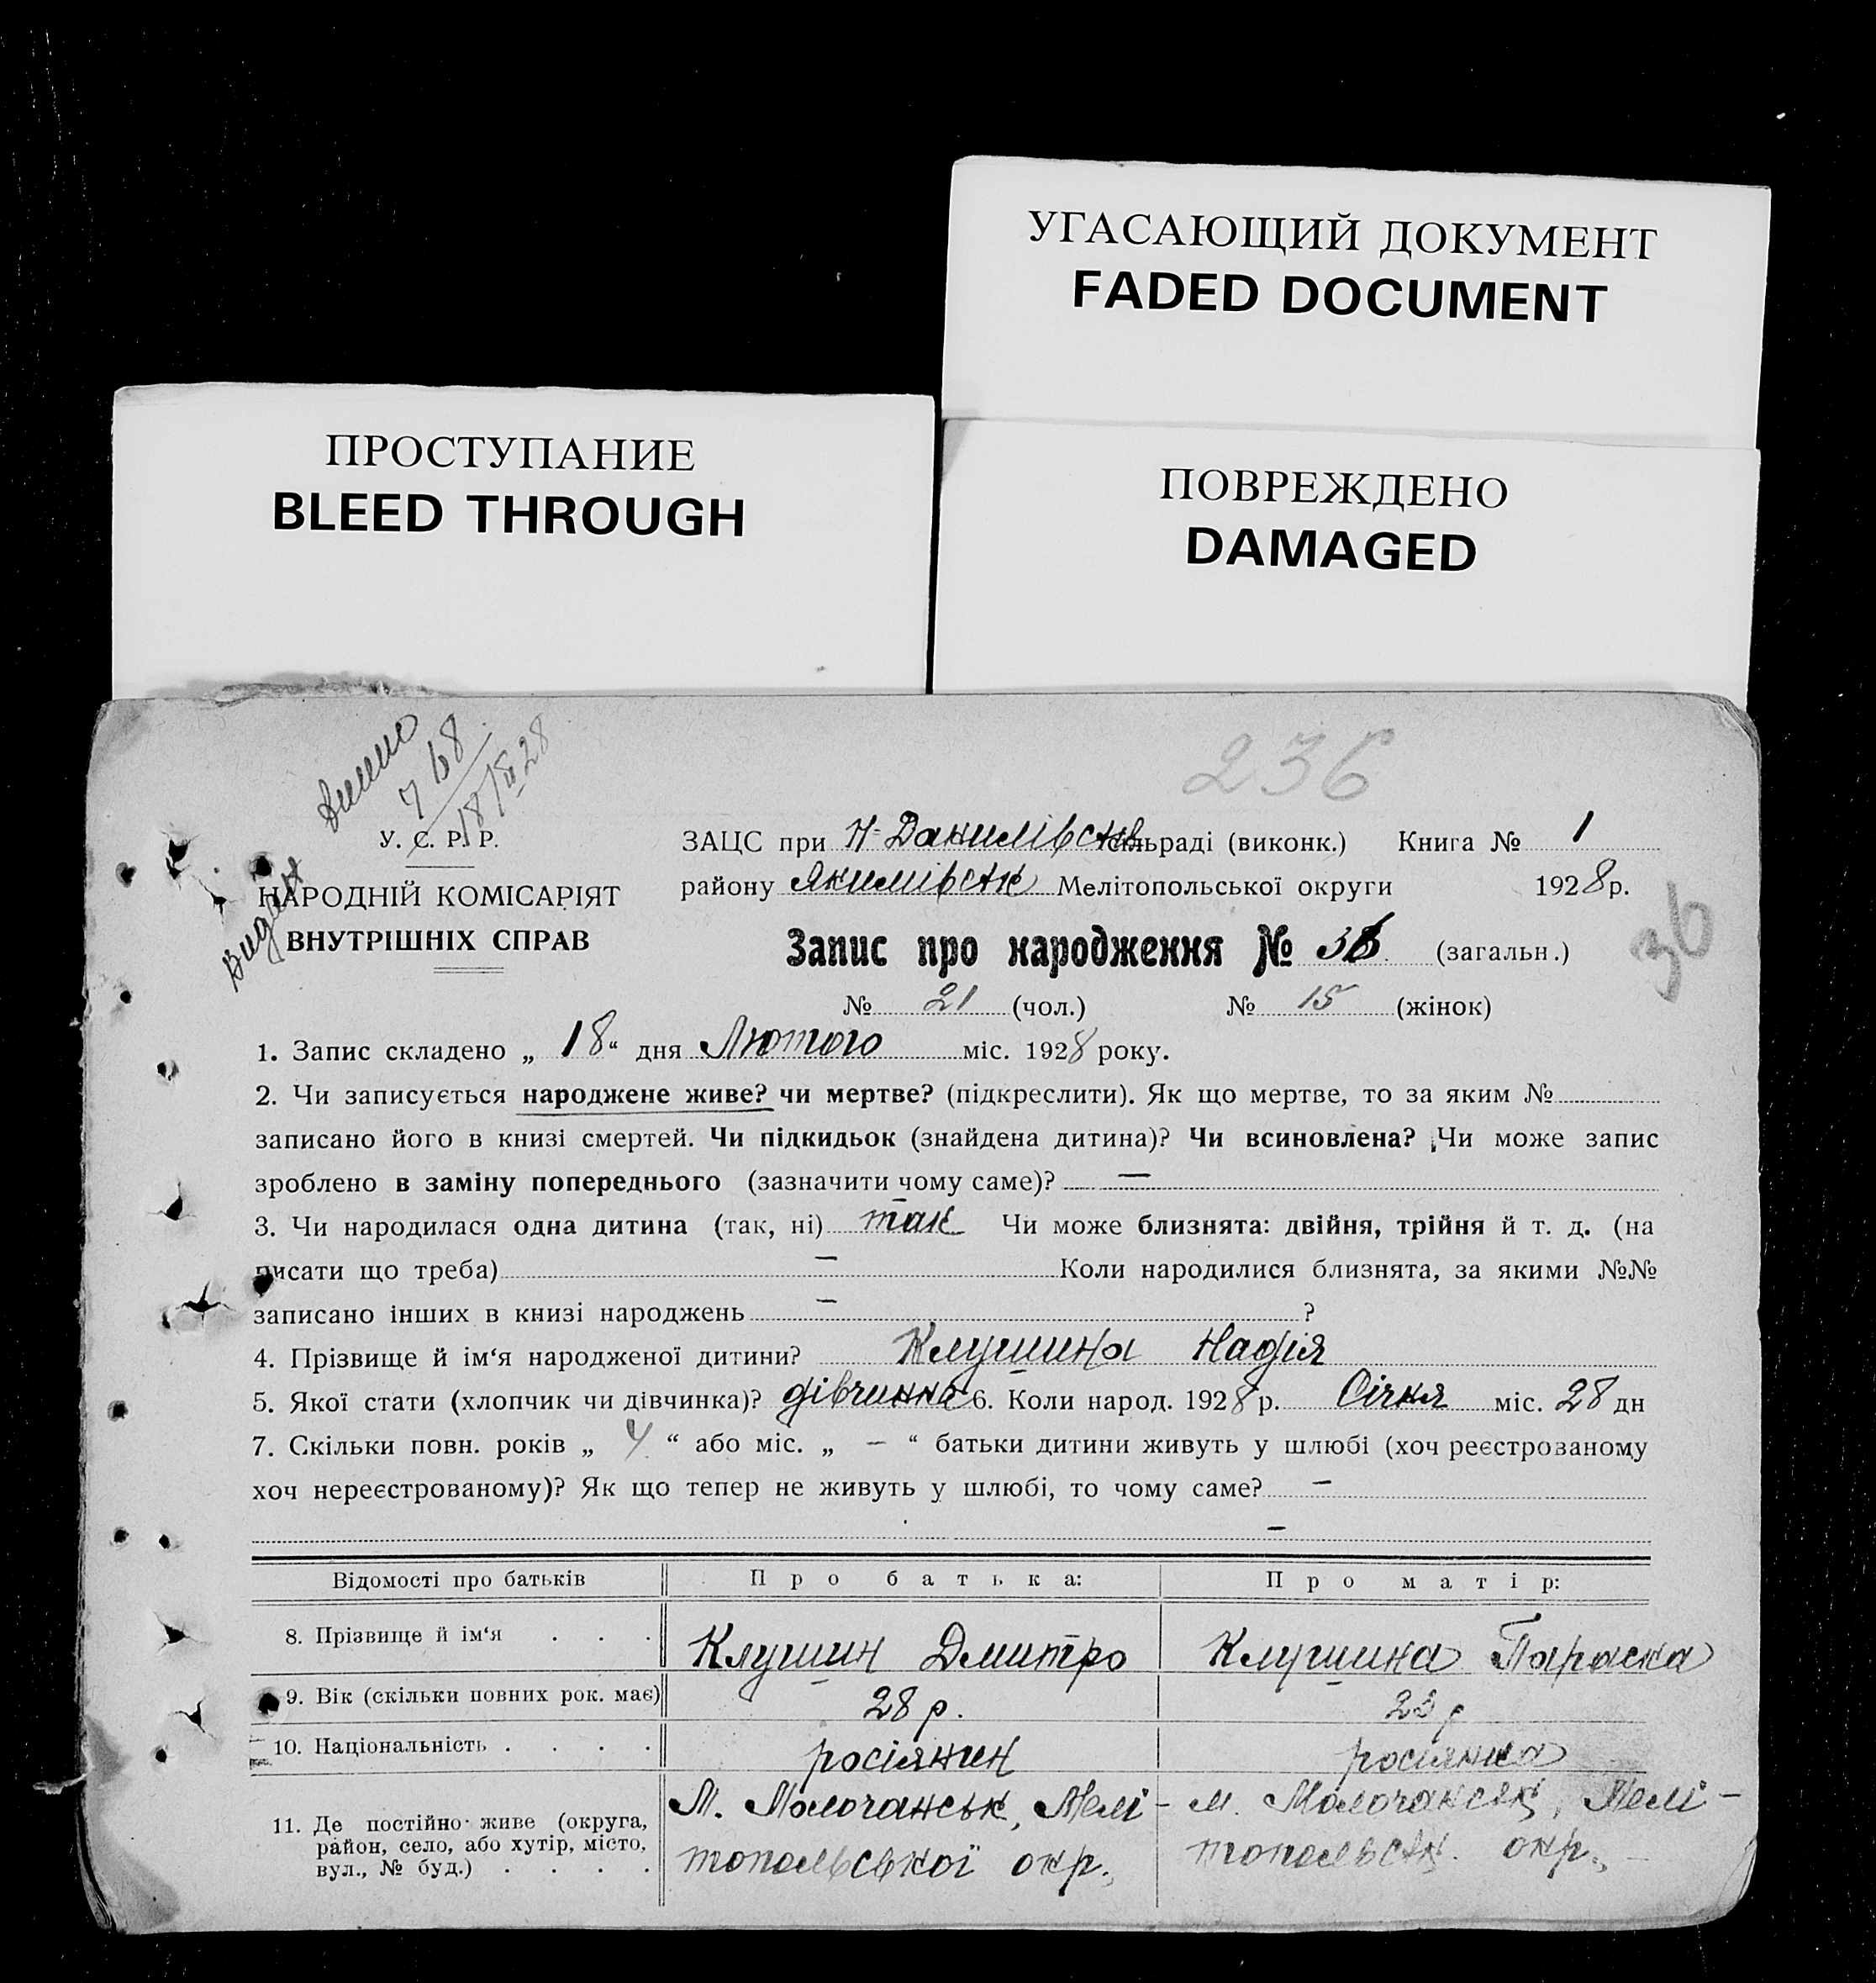 УГАСАЮЩИЙ ДОКУМЕНТ
FADED DOCUMENT
ПРОСТУПАНИЕ
BLEED THROUGH
ПОВРЕЖДЕНО
DAMAGED
768
18/II 28
236
У. С. Р. Р.
НАРОДНІЙ КОМІСАРІЯТ
ВНУТРІШНІХ СПРАВ
Видан
ЗАЦС при Н-Данилівськ сільраді (виконк.) Книга № 1
району Якимівськ Мелітопольської округи 1928 р.
Запис про народження № 36 (загальн.)
36
№ 21 (чол.) № 15 (жінок)
1. Запис складено „ 18 “ дня Лютого міс. 1928 року.
2. Чи записується народжене живе? чи мертве? (підкреслити). Як що мертве, то за яким №
записано його в книзі смертей. Чи підкидьок (знайдена дитина)? Чи всиновлена? Чи може запис
зроблено в заміну попереднього (зазначити чому саме)? —
3. Чи народилася одна дитина (так, ні) так Чи може близнята: двійня, трійня й т. д. (на
писати що треба) — Коли народилися близнята, за якими №№
записано інших в книзі народжень — ?
4. Прізвище й ім‘я народженої дитини? Клушина Надія
5. Якої стати (хлопчик чи дівчинка)? дівчинка 6. Коли народ. 1928 р. Січня міс. 28 дн
7. Скільки повн. років „ 4 “ або міс. „ — “ батьки дитини живуть у шлюбі (хоч реєстрованому
хоч нереєстрованому)? Як що тепер не живуть у шлюбі, то чому саме? —
—
Відомості про батьків Про батька: Про матір:
8. Прізвище й ім‘я . . . Клушин Дмитро Клушина Параска
9. Вік (скільки повних рок. має) 28 р. 23 р
10. Національність . . . . росіянин росіянка
11. Де постійно живе (округа, район, село, або хутір, місто, вул., № буд.) . . . .
М. Молочанськ, Мелі-
топольської окр.
м. Молочанськ, Мелі-
топольськ. окр.